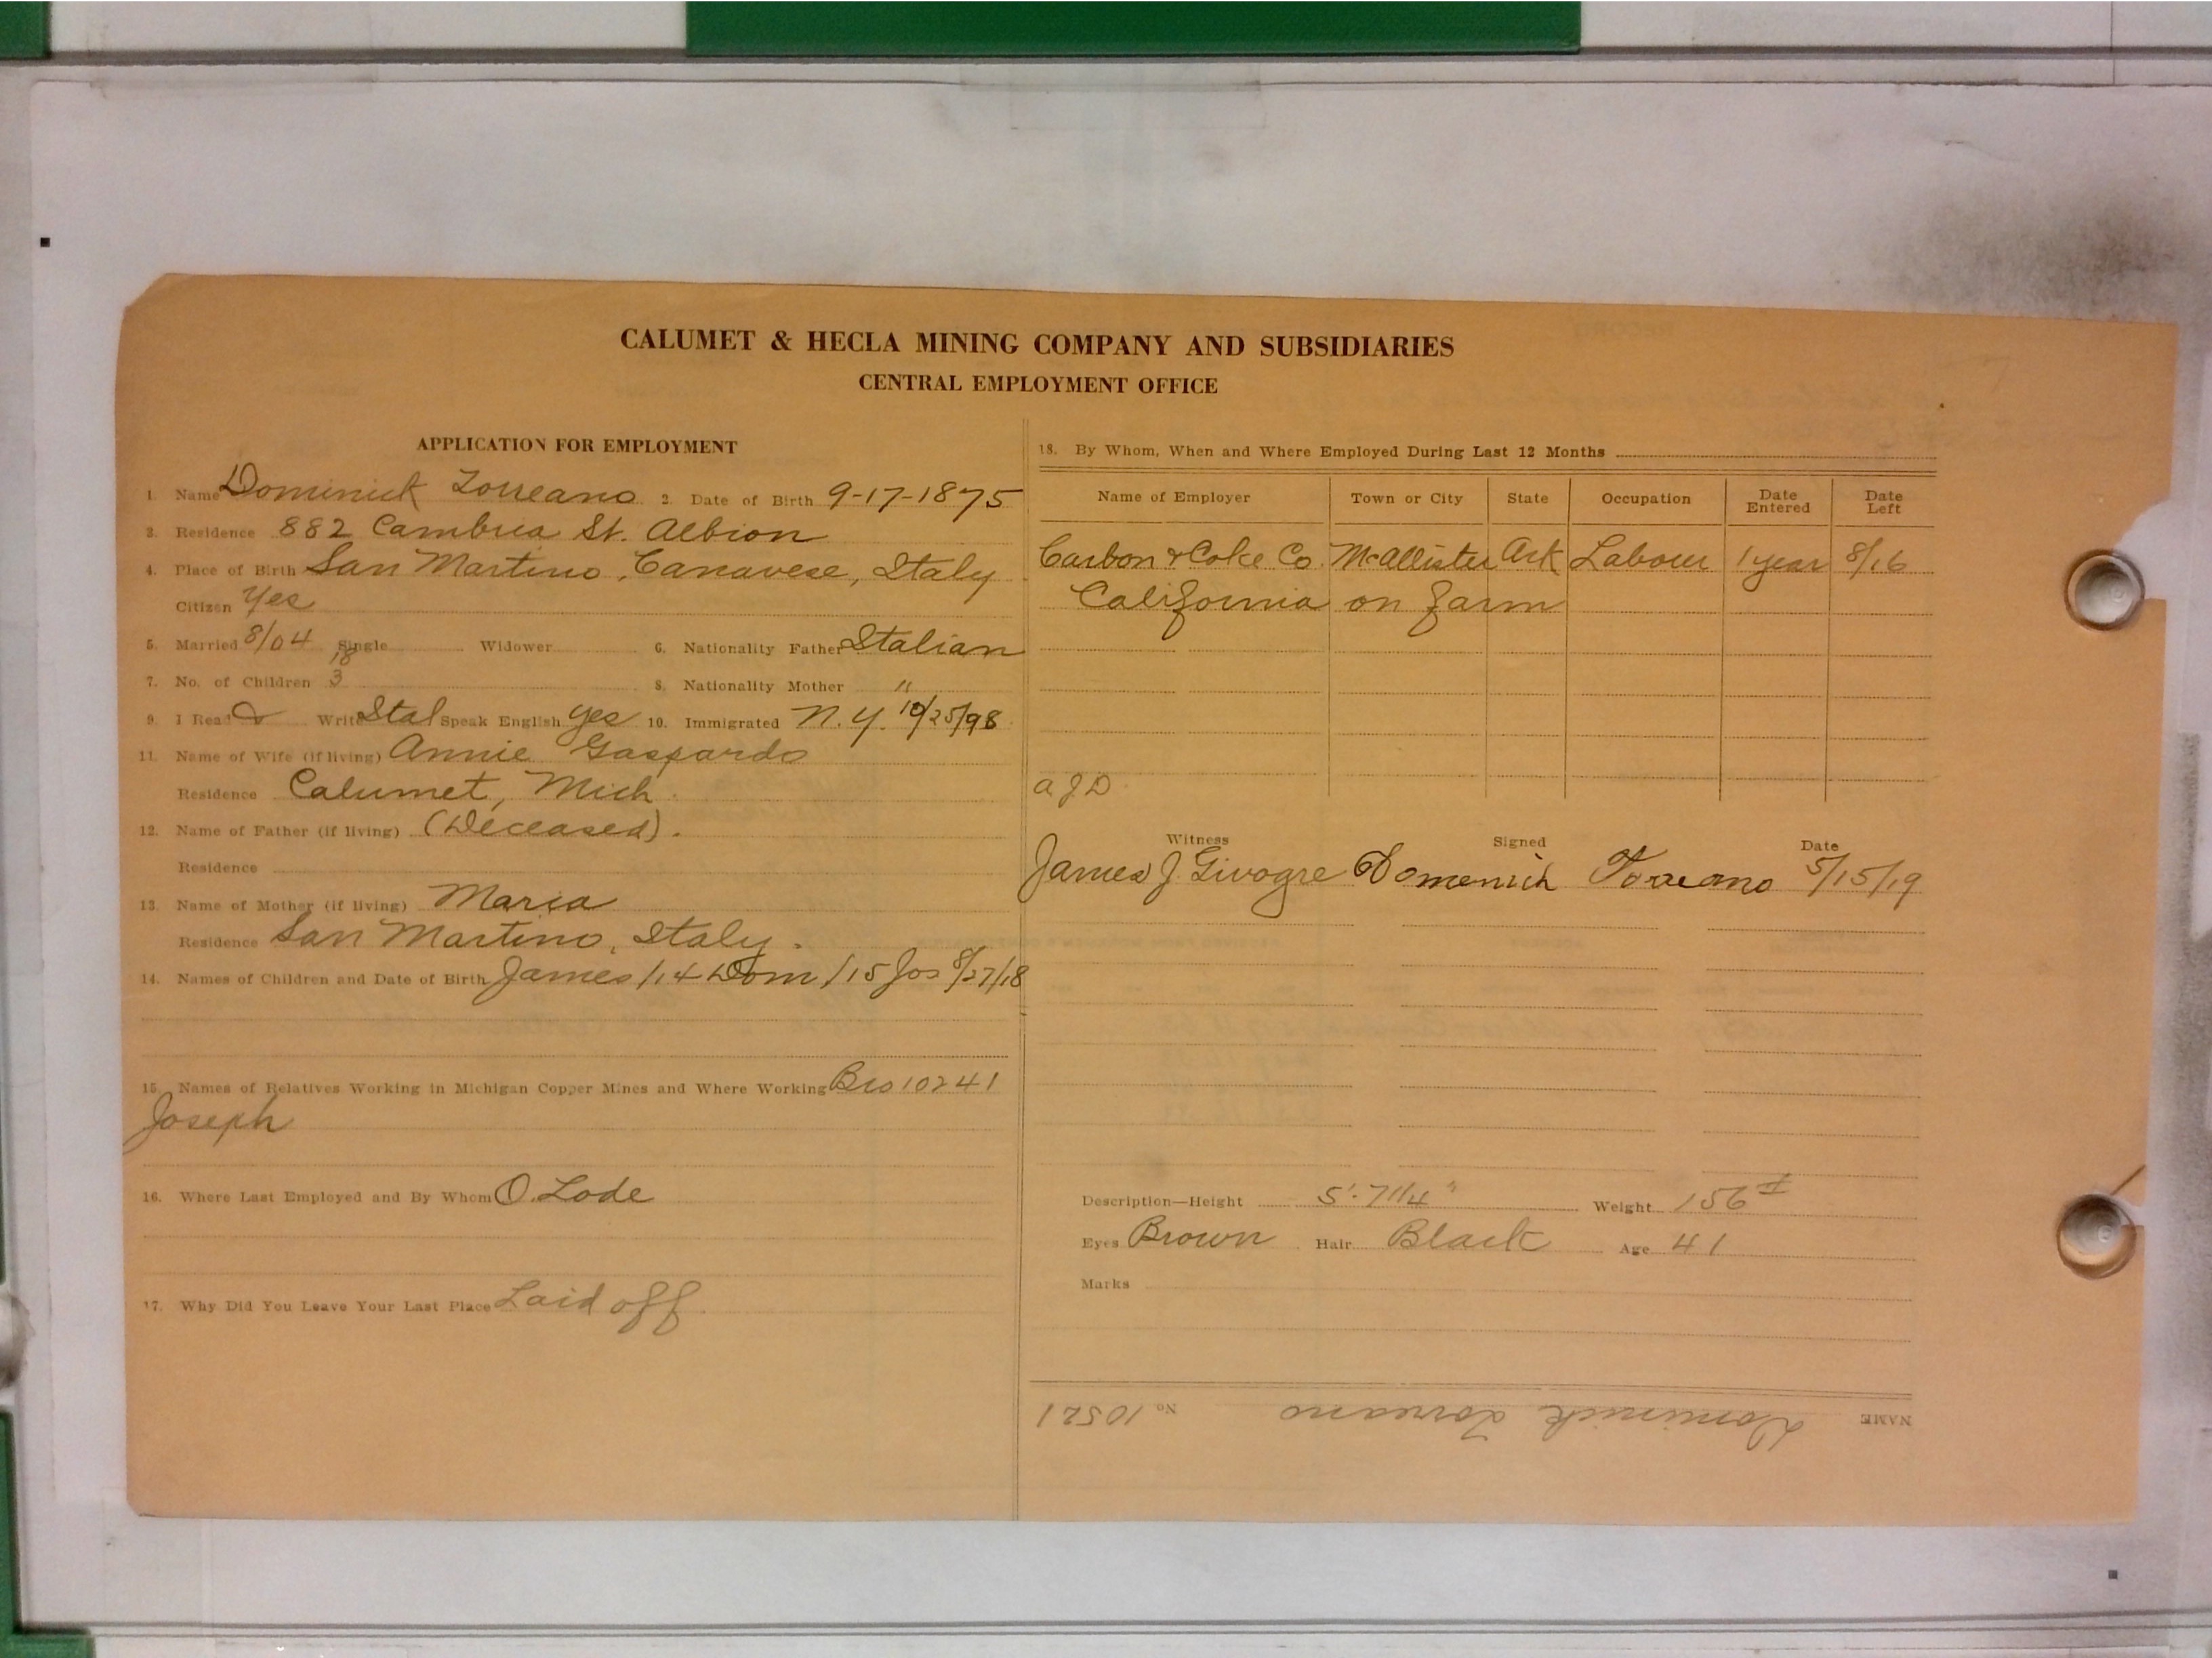 CALUMET & HECLA MINING COMPANY AND SUBSIDIARIES
CENTRAL EMPLOYMENT OFFICE
APPLICATION FOR EMPLOYMENT
1. Name Dominick Torreano 2. Date of Birth 9-17-1875
3. Residence 882 Cambria St. Albion
4. Place of Birth San Martino, Canavese, Italy
Citizen Yes
5. Married 8/04 Single Widower 6. Nationality Father Italian
18
7. No. of Children 3 8. Nationality Mother "
9. I Read & Write Ital Speak English yes 10. Immigrated N.Y. 10/25/98
11. Name of Wife (if living) Annie Gaspardo
Residence Calumet, Mich.
12. Name of Father (if living) (Deceased).
Residence
13. Name of Mother (if living) Maria
Residence San Martino, Italy.
14. Names of Children and Date of Birth James /14 Dom /15 Jos 8/27/18
15. Names of Relatives Working in Michigan Copper Mines and Where Working Bro 10241
Joseph
16. Where Last Employed and By Whom O. Lode
17. Why Did You Leave Your Last Place Laid off
18. By Whom, When and Where Employed During Last 12 Months
Name of Employer Town or City State Occupation Date Entered Date Left
Carbon & Coke Co. McAllister Ark Labour 1 year 8/16
California on farm
a J D
Witness Signed Date
James J. Givogre Domenick Torreano 5/15/19
Description—Height 5'-7 1/4" Weight 156#
Eyes Brown Hair Black Age 41
Marks
NAME Dominick Torreano No 10521